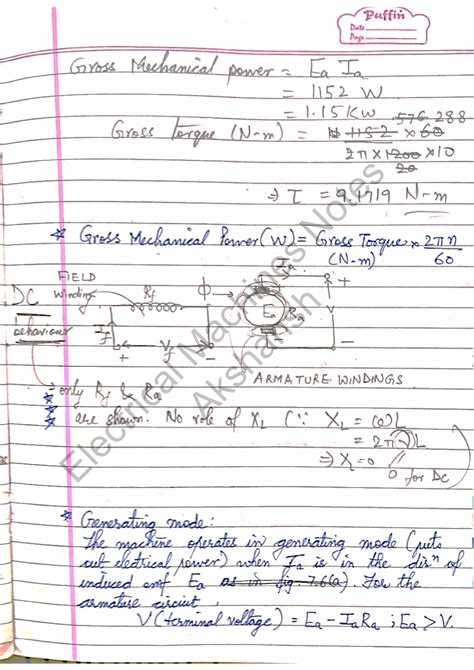 Puffin
Date
Page
Gross Mechanical power = Ea Ia
= 1152 W
= 1.15 KW
Gross torque (N-m) = 1152 × 60
576 288
2π × 1200 × 10
20
⇒ τ = 9.1719 N-m
* Gross Mechanical Power (W) = Gross Torque × 2πn
(N-m) 60
FIELD
winding
Rf
ϕ
Ia
+
DC
behaviour
If
Ea
Ra
V
+ Vf -
-
ARMATURE WINDINGS
only Rf & Ra
are shown. No role of XL (∵ XL = ωL
= 2πνL
⇒ XL = 0
0 for DC
* Generating mode:
The machine operates in generating mode (puts
out electrical power) when Ia is in the dirⁿ of
induced emf Ea as in fig. 7.6(a). For the
armature circuit,
V (terminal voltage) = Ea - IaRa ; Ea > V.
Electrical Machines Notes
Akshansh